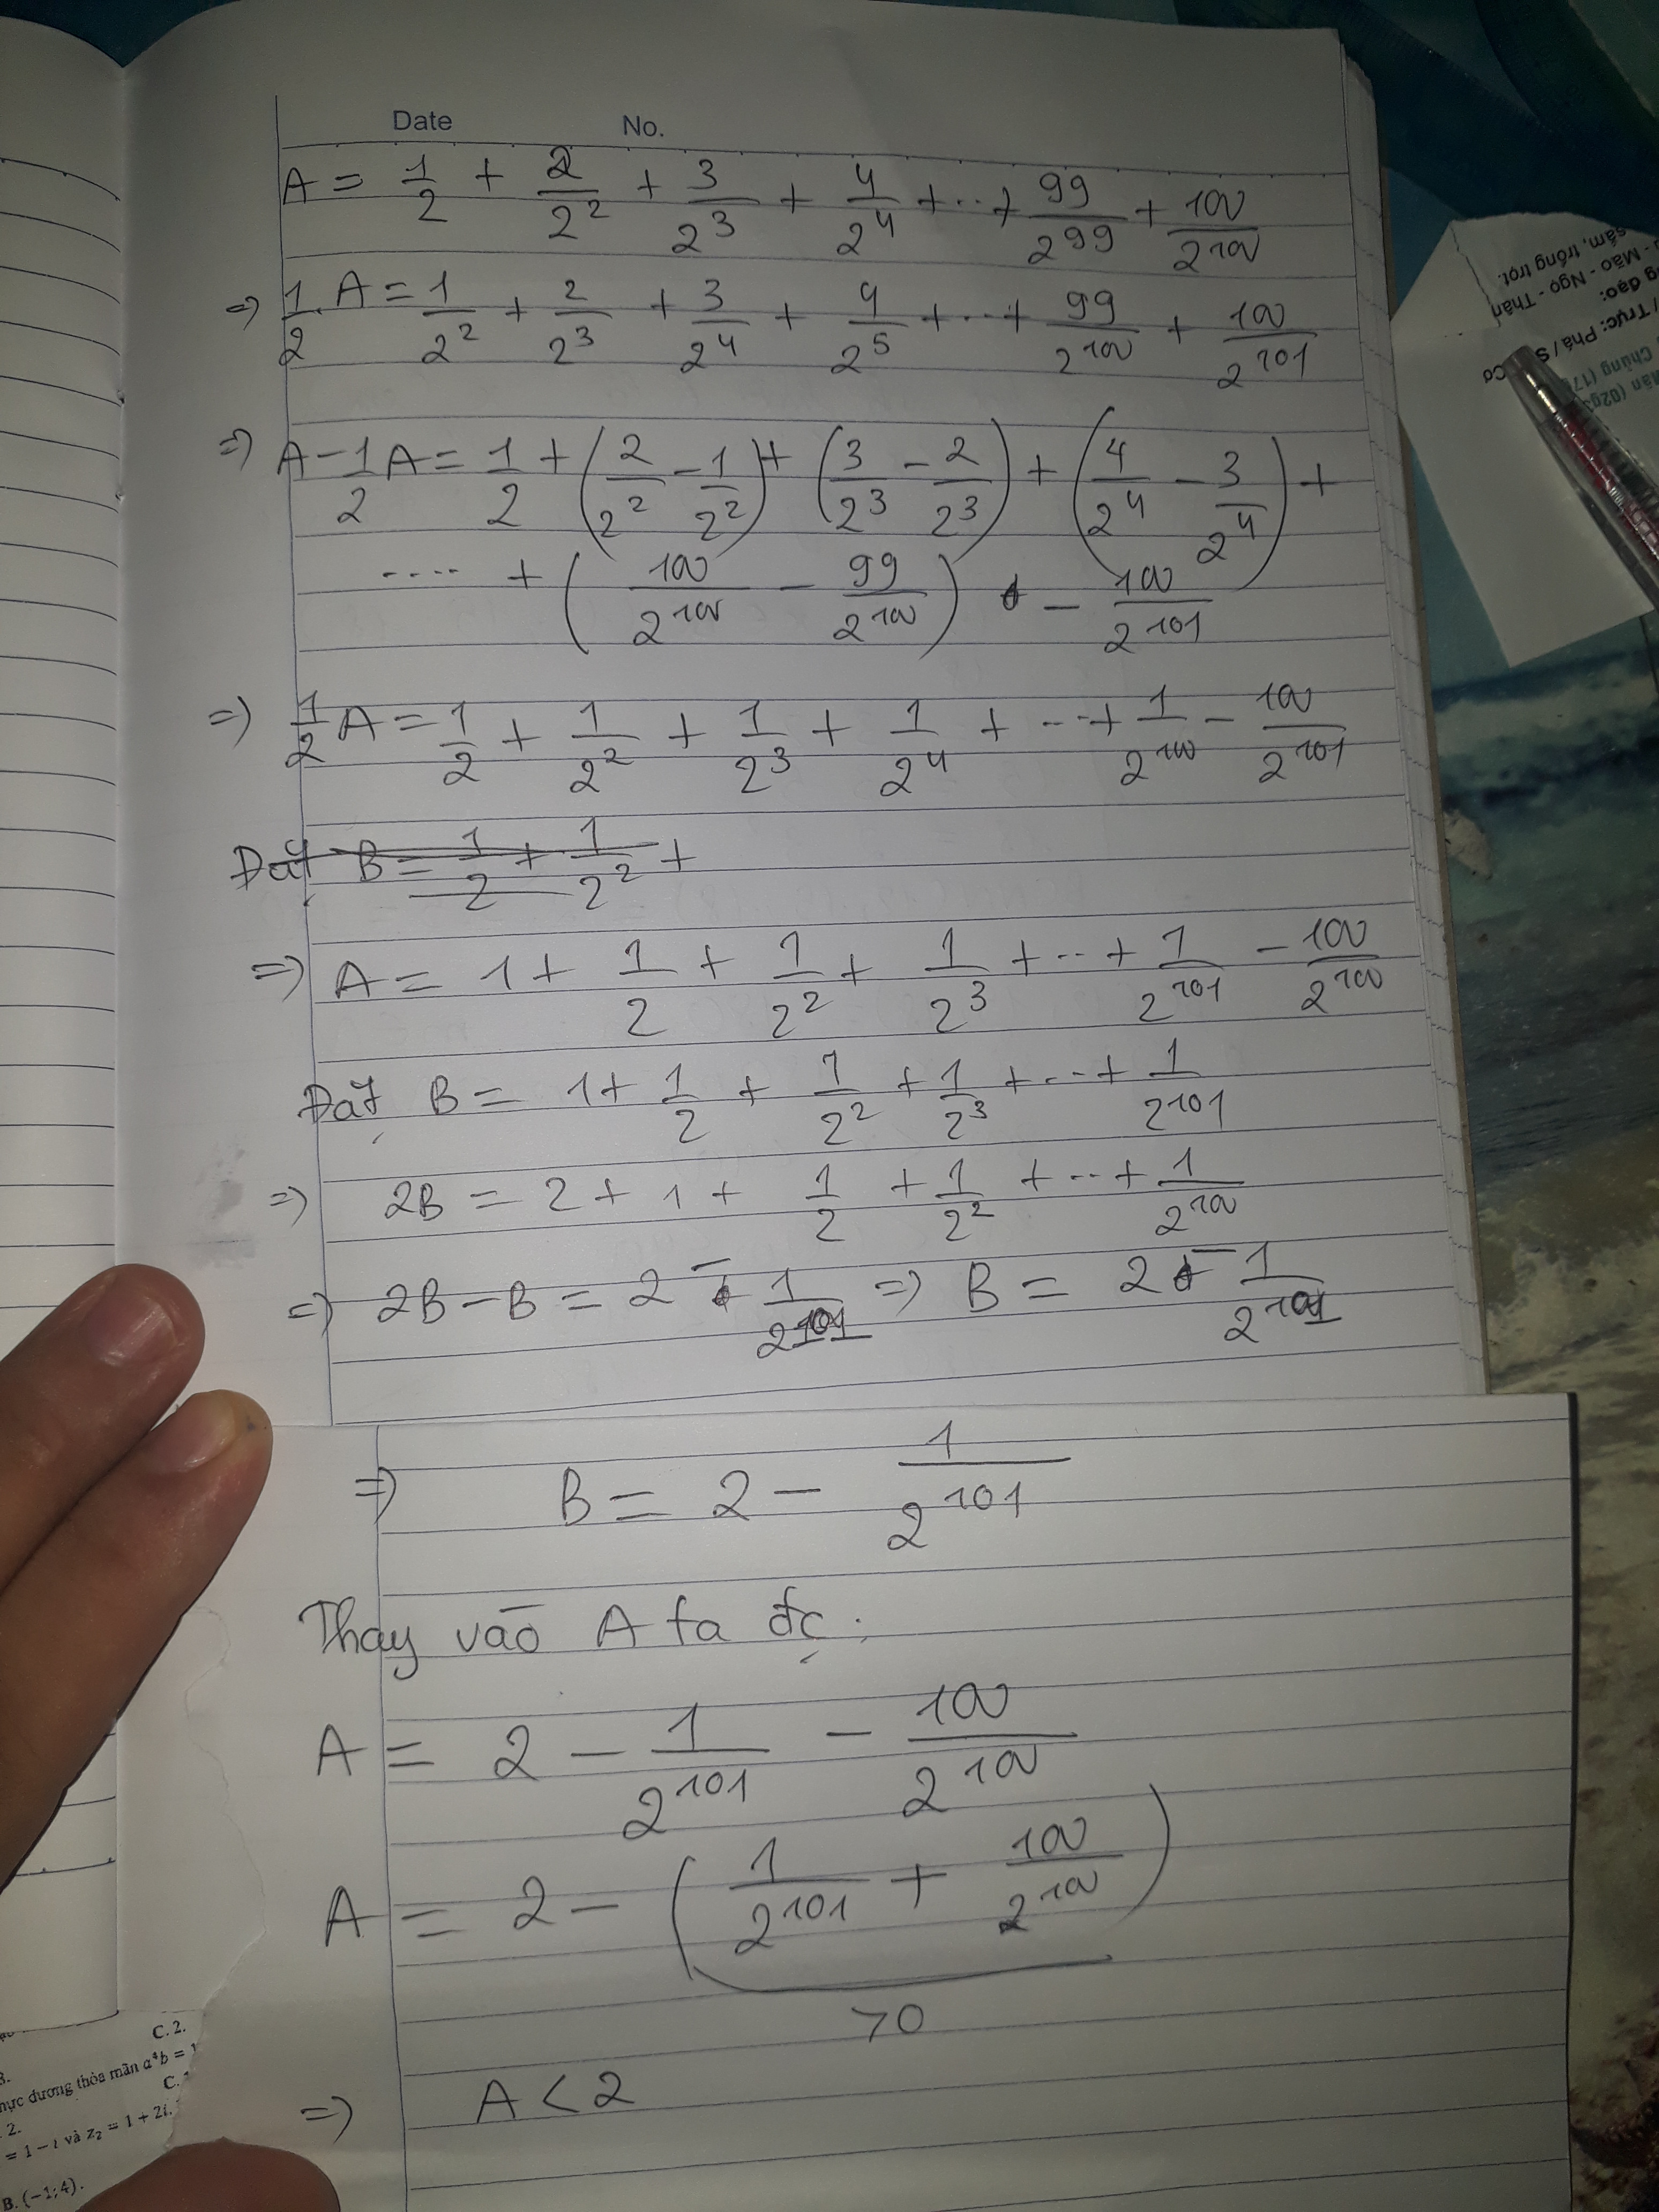 Date No.
A = 1/2 + 2/2^2 + 3/2^3 + 4/2^4 + ... + 99/2^99 + 100/2^100
=> 1/2 . A = 1/2^2 + 2/2^3 + 3/2^4 + 4/2^5 + ... + 99/2^100 + 100/2^101
=> A - 1/2 A = 1/2 + (2/2^2 - 1/2^2) + (3/2^3 - 2/2^3) + (4/2^4 - 3/2^4) +
.... + (100/2^100 - 99/2^100) - 100/2^101
=> 1/2 A = 1/2 + 1/2^2 + 1/2^3 + 1/2^4 + ... + 1/2^100 - 100/2^101
Đặt B = 1/2 + 1/2^2 +
=> A = 1 + 1/2 + 1/2^2 + 1/2^3 + ... + 1/2^101 - 100/2^100
Đặt B = 1 + 1/2 + 1/2^2 + 1/2^3 + ... + 1/2^101
=> 2B = 2 + 1 + 1/2 + 1/2^2 + ... + 1/2^100
=> 2B - B = 2 - 1/2^101 => B = 2 - 1/2^101
=> B = 2 - 1/2^101
Thay vào A ta đc:
A = 2 - 1/2^101 - 100/2^100
A = 2 - (1/2^101 + 100/2^100)
>0
=> A < 2
sắm, trồng trọt.
- Mão - Ngọ - Thân
đạo:
/ Trực: Phá / S
C. 2.
thực dương thỏa mãn a^4b = 1
C.
2.
= 1 - i và z2 = 1 + 2i.
B. (-1;4).